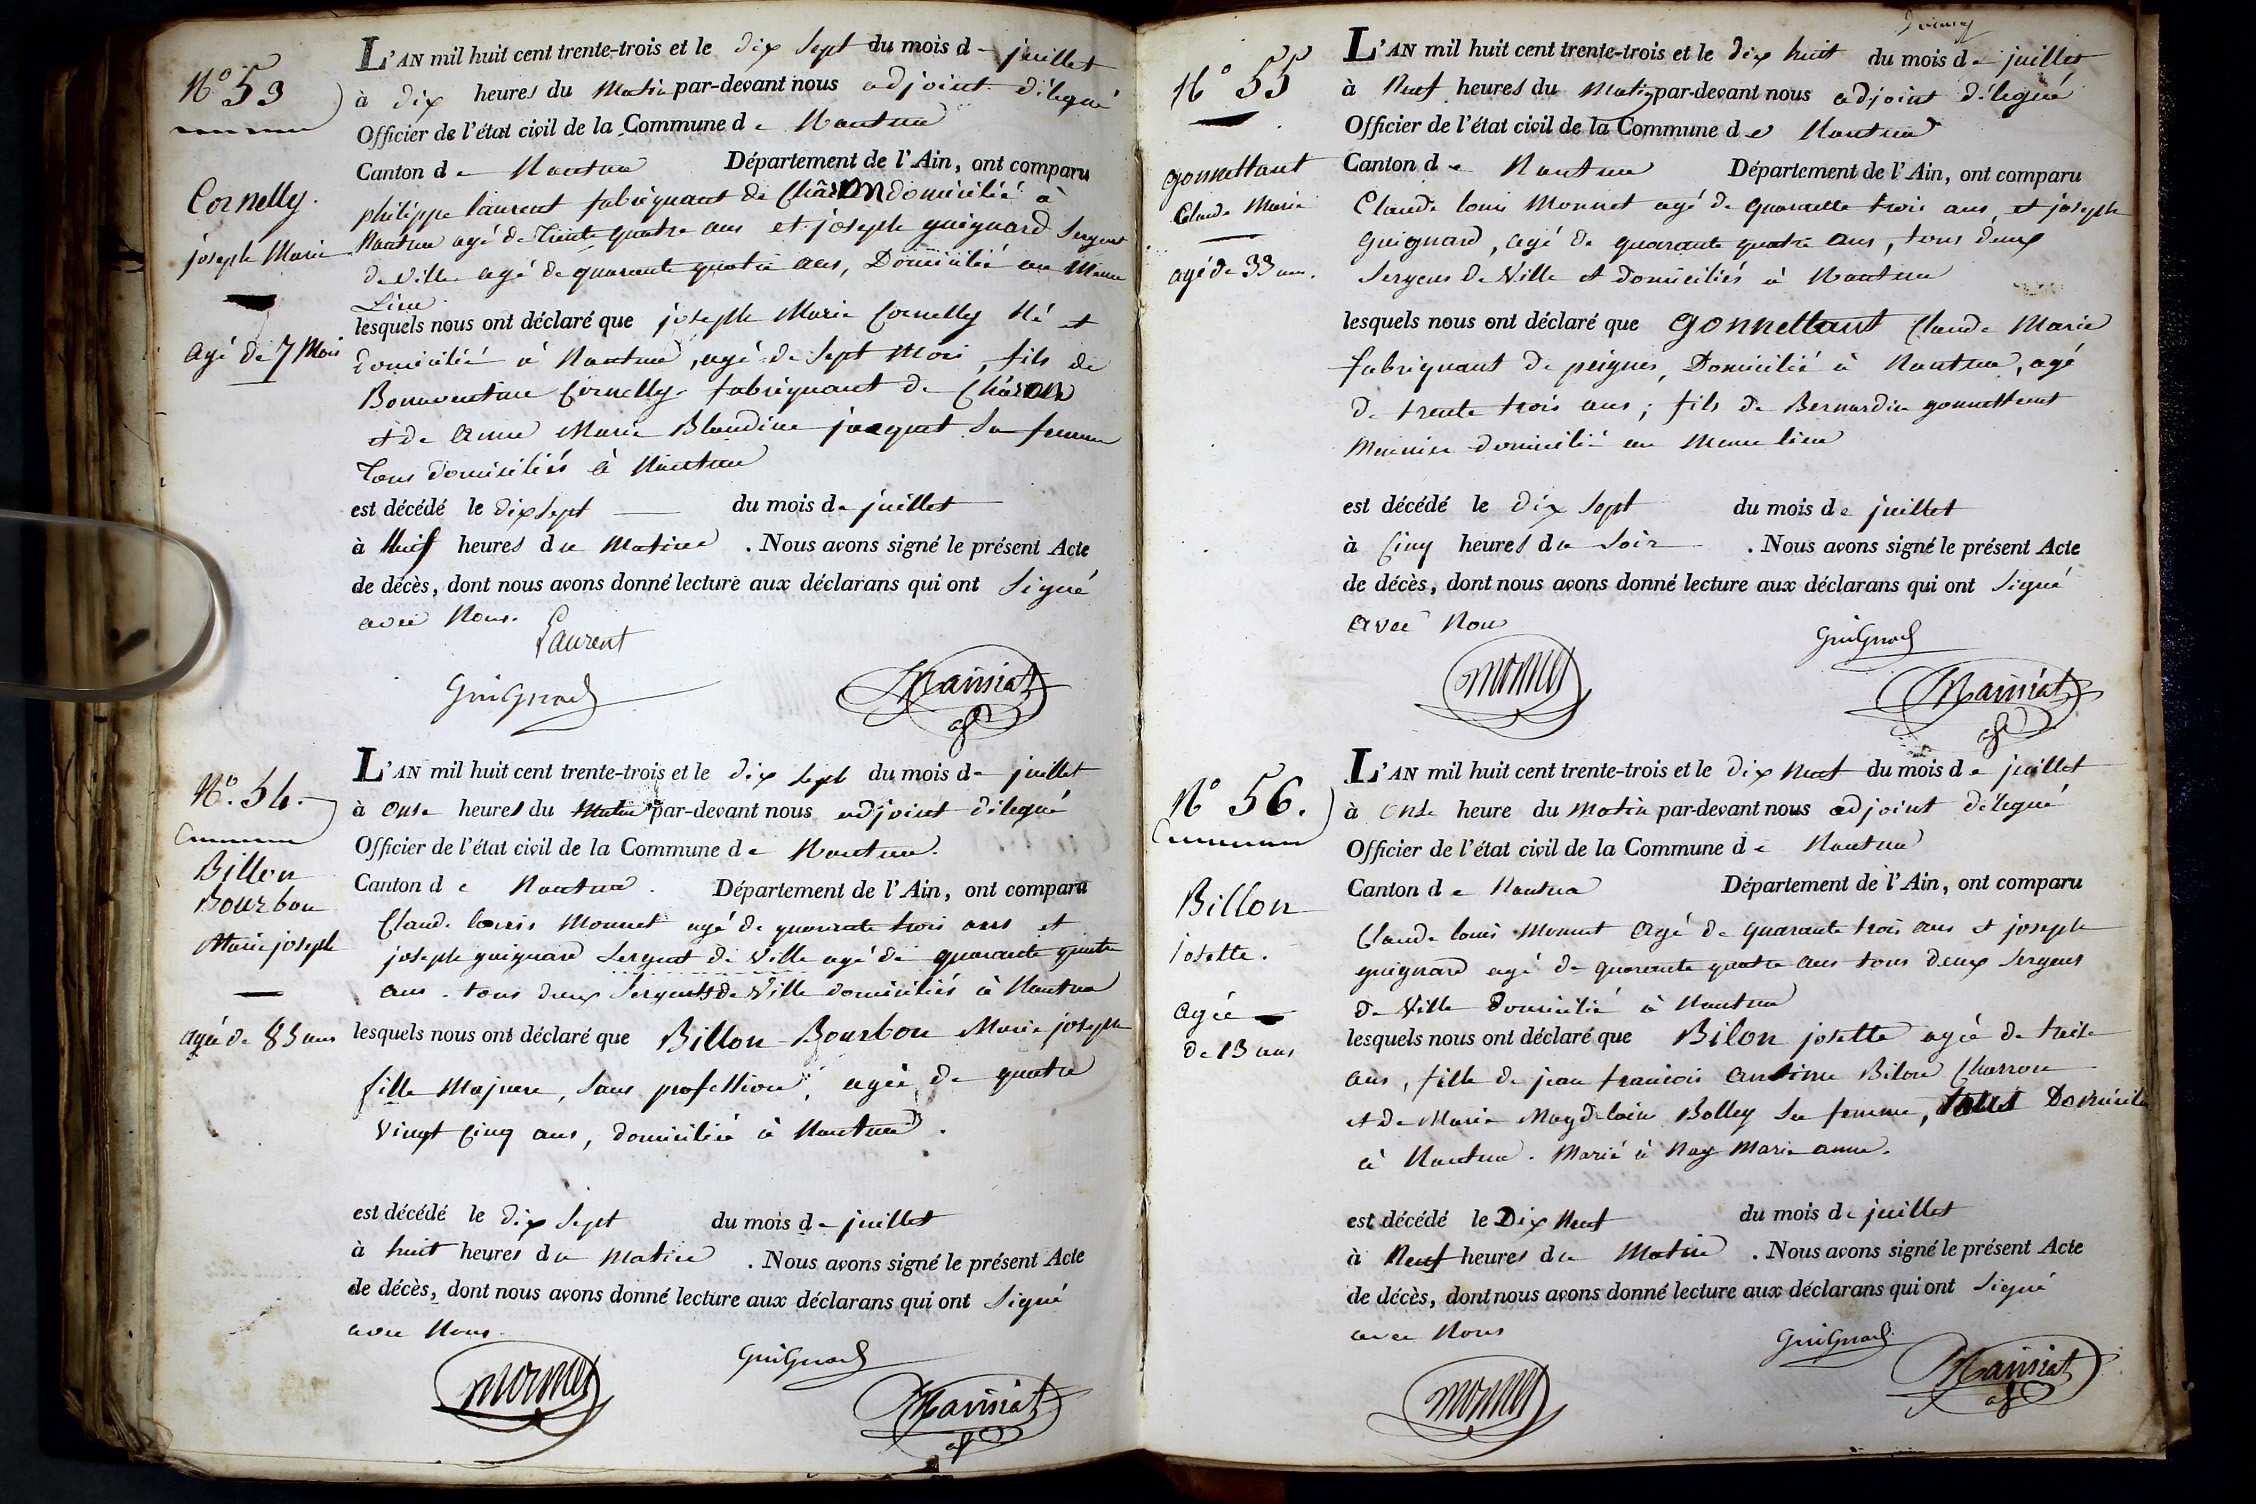 N.º 53
Cornelly.
joseph Marie
agé de 7 Mois
L'AN mil huit cent trente-trois et le dix sept du mois de juillet
à dix heures du Matin par-devant nous adjoint délegué
Officier de l'état civil de la Commune de Nantua
Canton de Nantua Département de l'Ain, ont comparu
philippe laurent fabriquant de domicilié à
Nantua agé de trente quatre ans et joseph guignard Sergent
de Ville agé de quarante quatre ans, Domicilié au Meme
Lieu
lesquels nous ont déclaré que joseph Marie Cornelly Né et
Domicilié à Nantua, agé de Sept Mois, fils de
Bonaventure Cornelly fabriquant de
et de Anne Marie Blandine jacquet Sa femme
Tous domiciliés à Nantua
est décédé le dix Sept du mois de juillet
à heures du Matin . Nous avons signé le présent Acte
de décès, dont nous avons donné lecture aux déclarans qui ont Signé
avec Nous.
Laurent
Guignard
Mansiat
N.º 54.
Billon
Bourbon
Marie joseph
agée de 85 ans
L'AN mil huit cent trente-trois et le dix sept du mois de juillet
à onse heures du Matin par-devant nous adjoint délegué
Officier de l'état civil de la Commune de Nantua.
Canton de Nantua. Département de l'Ain, ont comparu
Claude louis Monnet agé de quarante trois ans et
joseph guignard Sergent de Ville agé de quarante quatre
ans. tous deux Sergents de Ville domiciliés à Nantua
lesquels nous ont déclaré que Billon Bourbon Marie joseph
fille Majeure, Sans profession, agée de quatre
Vingt Cinq ans, domiciliée à Nantua.
est décédé le dix Sept du mois de juillet
à huit heures du Matin . Nous avons signé le présent Acte
de décès, dont nous avons donné lecture aux déclarans qui ont Signé
avec Nous.
monnet
Guignard
Mansiat
N.º 55
gonnettant
Claude Marie
agé de 33 ans.
L'AN mil huit cent trente-trois et le dix huit du mois de juillet
à Neuf heures du Matin par-devant nous adjoint délegué
Officier de l'état civil de la Commune de Nantua
Canton de Nantua Département de l'Ain, ont comparu
Claude louis Monnet agé de quarante trois ans, et joseph
Guignard, agé de quarante quatre ans, tous deux
Sergens de Ville et domiciliés à Nantua
lesquels nous ont déclaré que gonnettant Claude Marie
fabriquant de peignes, Domicilié à Nantua, agé
de trente trois ans; fils de Bernardin gonnettant
domicilié au Meme lieu
est décédé le dix Sept du mois de juillet
à Cinq heures du Soir . Nous avons signé le présent Acte
de décès, dont nous avons donné lecture aux déclarans qui ont Signé
Avec Nous
monnet
Guignard
Mansiat
N.º 56.
Billon
josette.
agée
de 13 ans
L'AN mil huit cent trente-trois et le dix Neuf du mois de juillet
à onse heure du Matin par-devant nous adjoint délegué
Officier de l'état civil de la Commune de Nantua
Canton de Nantua Département de l'Ain, ont comparu
Claude louis Monnet agé de quarante trois ans et joseph
guignard agé de quarante quatre ans tous deux Sergens
de Ville domicilié à Nantua
lesquels nous ont déclaré que Bilon josette agée de treize
ans, fille de jean françois Bilon Charron
et de Marie Magdelaine Bolley Sa femme, tous Domicilié
à Nantua. Marié à Nay Marie anne.
est décédé le Dix Neuf du mois de juillet
à Neuf heures du Matin . Nous avons signé le présent Acte
de décès, dont nous avons donné lecture aux déclarans qui ont Signé
avec Nous
monnet
Guignard
Mansiat